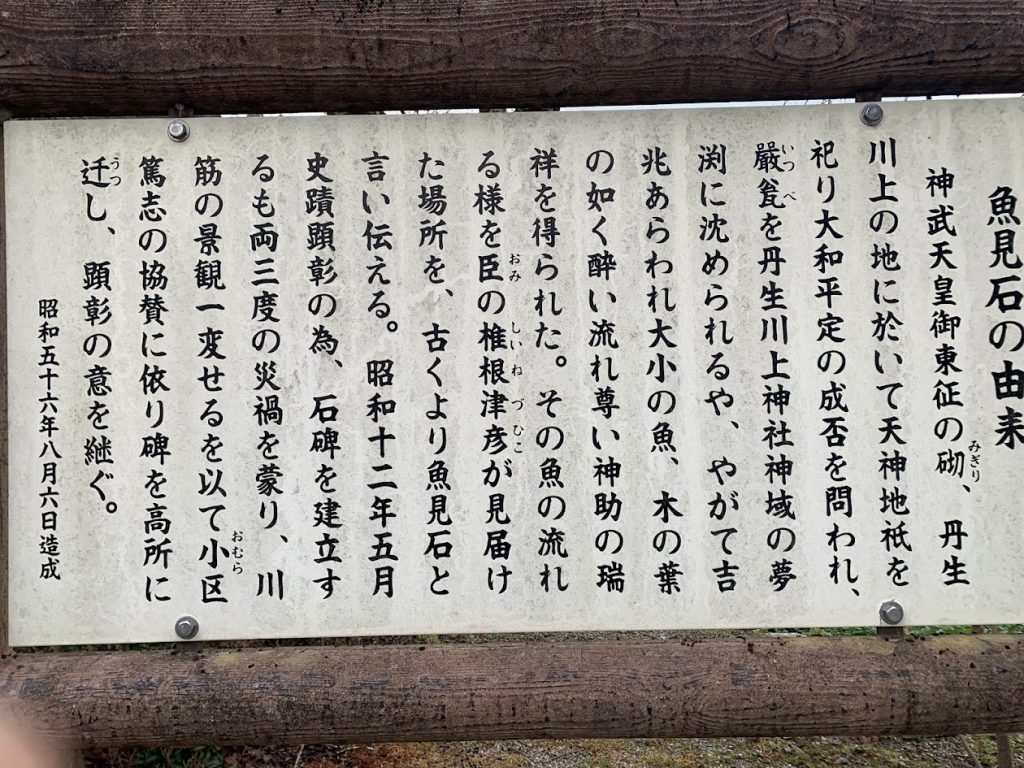 魚見石の由来
神武天皇御東征の砌、丹生
川上の地に於いて天神地祇を
祀り大和平定の成否を問われ、
嚴瓮を丹生川上神社神域の夢
渕に沈められるや、やがて吉
兆あらわれ大小の魚、木の葉
の如く酔い流れ尊い神助の瑞
祥を得られた。その魚の流れ
る様を臣の椎根津彦が見届け
た場所を、古くより魚見石と
言い伝える。昭和十二年五月
史蹟顕彰の為、石碑を建立す
るも両三度の災禍を蒙り、川
筋の景観一変せるを以て小区
篤志の協賛に依り碑を高所に
迁し、顕彰の意を継ぐ。
昭和五十六年八月六日造成
みぎり
いつべ
おみ
しいねづひこ
おむら
うつ